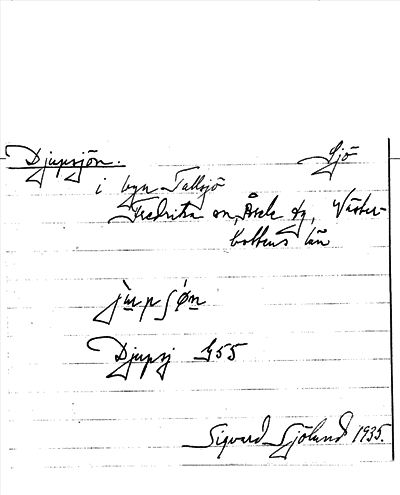 Djupsjön. Sjö
i byn Tallsjö
Fredrika sn, Åsele dg, Väster-
bottens län
Djupsj G55
Sigvard Sjölund 1935.